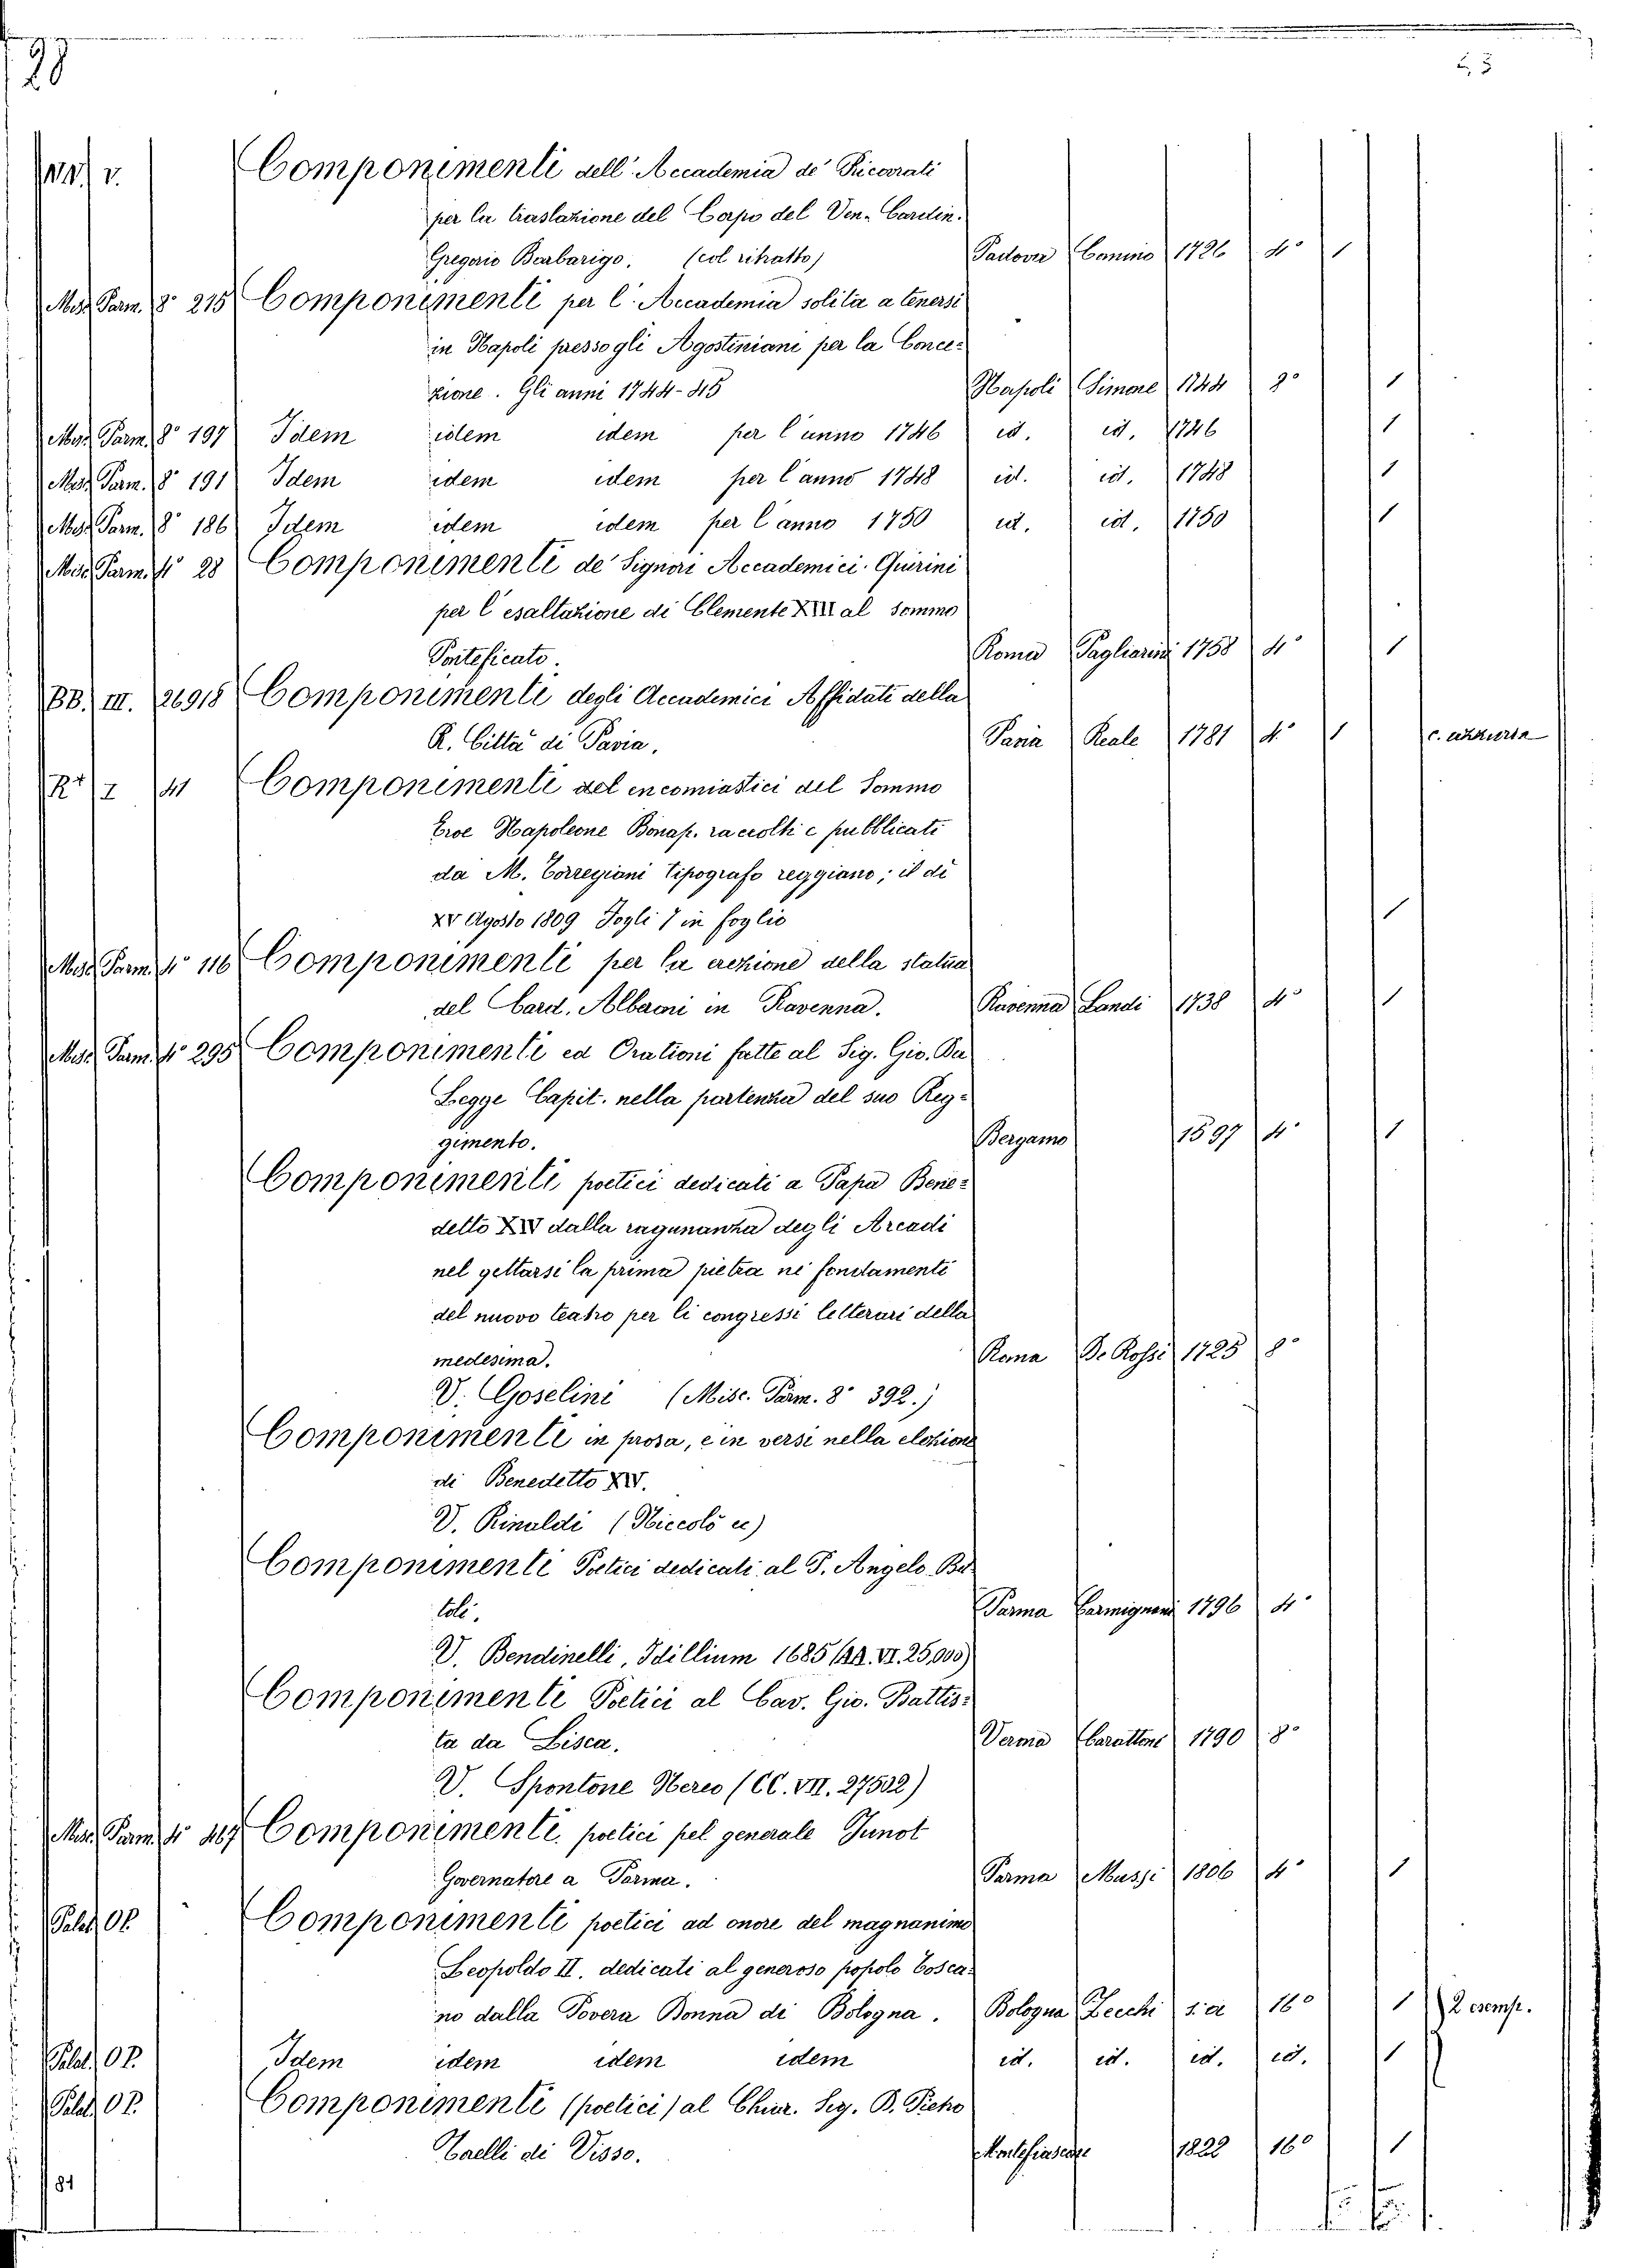 28
v. Componimenti dell'Accademia de' Ricovrati
per la traslazione del Corpo del Ven. Cardin.
Gregorio Barbarigo. (col ritratto) Padova Comino 1726 4° 1
Misc. Parm. 8° 215 Componimenti per l'Accademia solita a tenersi
in Napoli pressogli Agostiniani per la Conce-
zione. Gli anni 1744-45 Napoli Simone 1744 8° 1
Misc. Parm. 8° 197 Idem idem idem per l'anno 1746 id. id. 1746 1
Misc. Parm. 8° 191 Idem idem idem per l'anno 1748 id. id. 1748 1
Misc. Parm. 8° 186 Idem idem idem per l'anno 1750 id. id. 1750 1
Misc. Parm. 4° 28 Componimenti de' Signori Accademici Quirini
per l'esaltazione di Clemente XIII al sommo
Ponteficato. Roma Pagliarini 1758 4° 1
BB. III. 26918 Componimenti degli Accademici Affidati della
R. Città di Pavia. Pavia Reale 1781 4° 1 c. azzurra
R+ I 41 Componimenti del encomiastici del Sommo
Eroe Napoleone Bonap. raccolti e pubblicati
da M. Torregiani tipografo reggiano; il di
XV Agosto 1809 Fogli 7 in foglio 1
Misc. Parm. 4° 116 Componimenti per la erezione della statua
del Card. Alberoni in Ravenna. Ravenna Landi 1738 4° 1
Misc. Parm. 4° 295 Componimenti ed Orationi fatte al Sig. Gio. Da
Legge Capit. nella partenza del suo Reg-
gimento. Bergamo 1597 4° 1
Componimenti poetici dedicati a Papa Bene-
detto XIV dalla ragunanza degli Arcadi
nel gettarsi la prima pietra ne fondamenti
del nuovo teatro per li congressi letterari della
medesima. Roma De Rossi 1725 8°
V. Goselini (Misc. Parm. 8° 392.)
Componimenti in prosa, e in versi nella elezione
di Benedetto XIV.
V. Rinaldi (Niccolò ec)
Componimenti Poetici dedicati al P. Angelo Ba-
toli. Parma Carmignani 1796 4°
V. Bendinelli, Idillium 1685 (AA. VI. 25,000)
Componimenti Poetici al Cav. Gio. Battis-
ta da Lisca. Verona Carattoni 1790 8°
V. Spontone Nereo (CC. VII. 27532)
Misc. Parm. 4° 467 Componimenti poetici pel generale Junot
Governatore a Parma. Parma Mussi 1806 4° 1
Palat. Componimenti poetici ad onore del magnanimo
Leopoldo II. dedicati al generoso popolo tosca-
no dalla Povera Bonna di Bologna. Bologna Zecchi s. a 16° 1 2 esemp.
Palat. Idem idem idem idem id. id. id. id. 1
Palat. Componimenti (poetici) al Chiar. Sig. B. Pietro
Taelli di Visso. 1822 16° 1
81